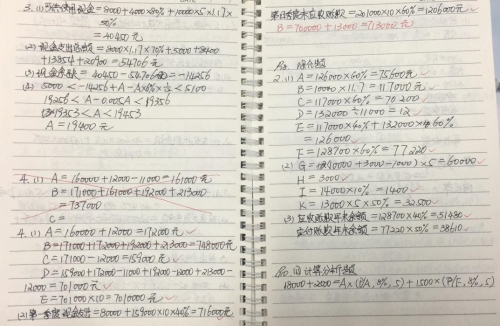 3. (1) 可供使用现金 = 8000 + 4000×80% + 10000×5×1.17×
50%
= 40450元
(2) 现金支出总额 = 8000×1.17×70% + 5000 + 8400
+ 13854 + 20900 = 54706元
(3) 现金余缺 = 40450 - 54706 = -14256
(4) 5000 < -14256 + A - A×6%×1/12 < 5100
19256 < A - 0.005A < 19356
19353 < A < 19453
A = 19400元
4. (1) A = 160000 + 12000 - 11000 = 161000元
B = 171000 + 161000 + 192000 + 213000
= 737000
C =
4. (1) A = 160000 + 12000 = 172000元
B = 171000 + 172000 + 192000 + 213000 = 748000元
C = 171000 - 12000 = 159000元
D = 159000 + 172000 - 11000 + 192000 - 12000 + 213000 -
12000 = 701000元
E = 701000×10 = 7010000元
(2) 第一季度现金= 80000 + 159000×10×40% = 716000元
= 201000×10×60% = 1206000元
B = 700000 + 13000 = 713000元
2. (1) A = 126000×60% = 75600元
B = 10000×11.7 = 117000元
C = 117000×60% = 70200
D = 132000÷11000 = 12
E = 117000×40% + 132000×60%
= 126000
F = 128700×60% = 77220
(2) G = (10000 + 3000 - 1000)×5 = 60000
H = 3000
I = 14000×10% = 1400
K = 13000×5×50% = 32500
(3) 应收账款年末余额 = 128700×40% = 51480
应付账款年末余额 = 77220×50% = 38610
计算分析题
18000 + 2000 = A×(P/A, 4%, 5) + 1500×(P/F, 4%, 5)